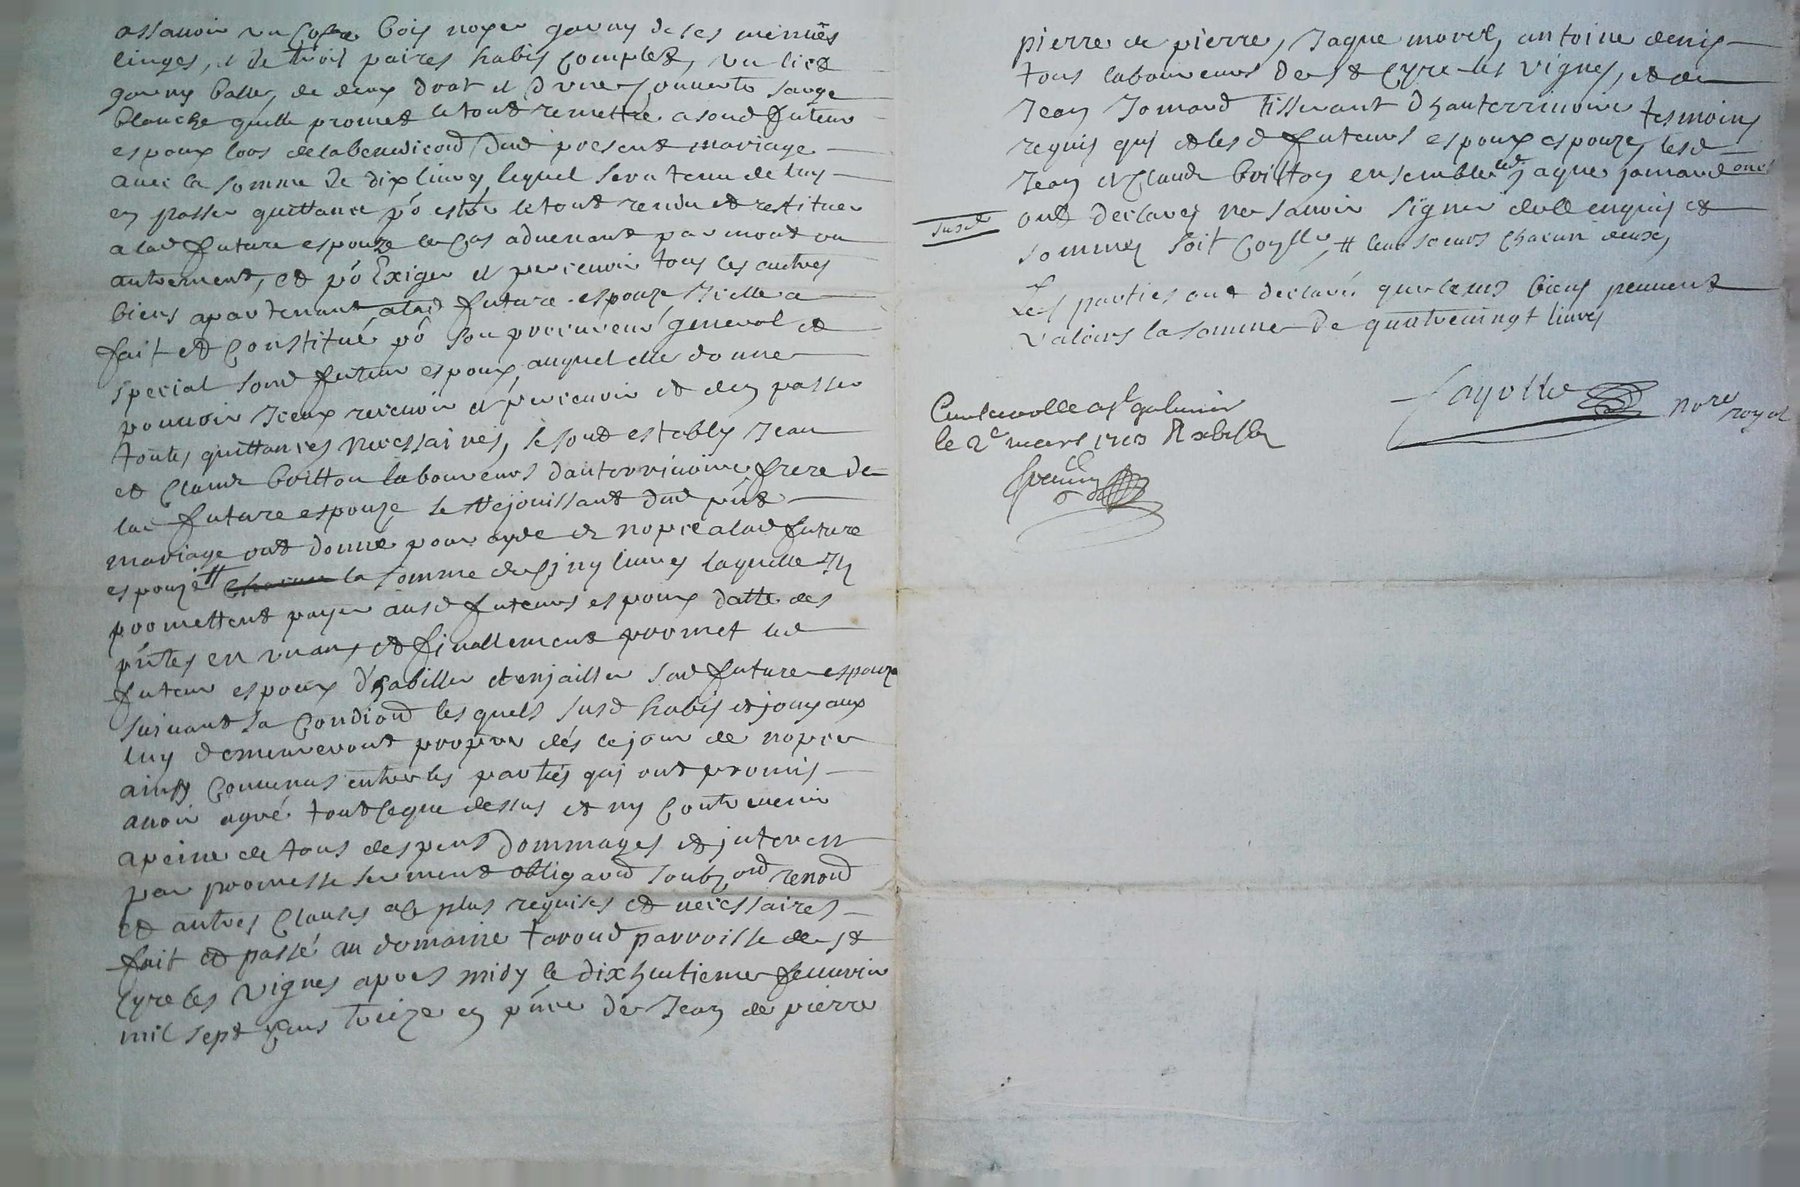 assauoir un coffre bois noyer garny de ses menuës
linges, et de trois paires habis complet, un lict
garny balle, de deux drat et d'une couuerte sarge
blanche quelle promet le tout remettre a sond futeur
espoux lors de la benediond dud present mariage
auec la somme de dix liures lequel sera tenu de luy
en passer quittance po estre le tout rendu et restituer
a lad future espouze le cas aduenant par mort ou
autrement, et po Exiger et perceuoir tous les autres
biens apartenant a lad future espouze Icelle a
fait et constitué po son procureur general et
special sond futeur espoux auquel elle donne
pouuoir Iceux receuoir et perceuoir et den passer
toutes quittances necessaires, se sont establys Jean
et Claude boitton laboureurs dauterriuoire frere de
lad future espouze le rejouissant dud pnt
mariage ont donné pour ayde de nopce a lad future
espouze # chacun la somme de cinq liures laquelle Ils
promettent payer ausd futeurs espoux datte des
pntes en un an, et finallement promet led
futeur espoux d'habiller et enjailler sad future espouze
suiuant sa condiond lesquels susd habis et joyaux
luy demeureront propre dés ce jour de nopce
ainsy conuenus entre les parties qui ont promis
auoir agreé tout ce que dessus et ny contreuenir
a peine de tous despens dommages et interest
par promesse serment obligaond soubzond renond
et autres clauses a ce plus requises et necessaires
fait et passé au domaine tarond parroisse de st
Cyre les Vignes apres midy le dixhuitieme feuurier
mil sept cens treize en pnce de Jean de pierre
pierre de pierre, Jaque morel, antoine denis
tous laboureurs de st Cyre les Vignes, et de
Jean Jomard tisserant d'hauterriuoire tesmoins
requis qui et lesd futeurs espoux espouze, lesd
Jean et Claude boitton ensemble led Jaque jomard ont
susd
ont declarés ne sauoir signer de ce enquis et
sommes soit Coylle, # leur soeurs chacun deux,
Les parties ont declaré que leurs biens peuuent
valoirs la somme de quatreuingt liures
Fayolle nore royal
Controollé a st galmier
le 2e mars 1713